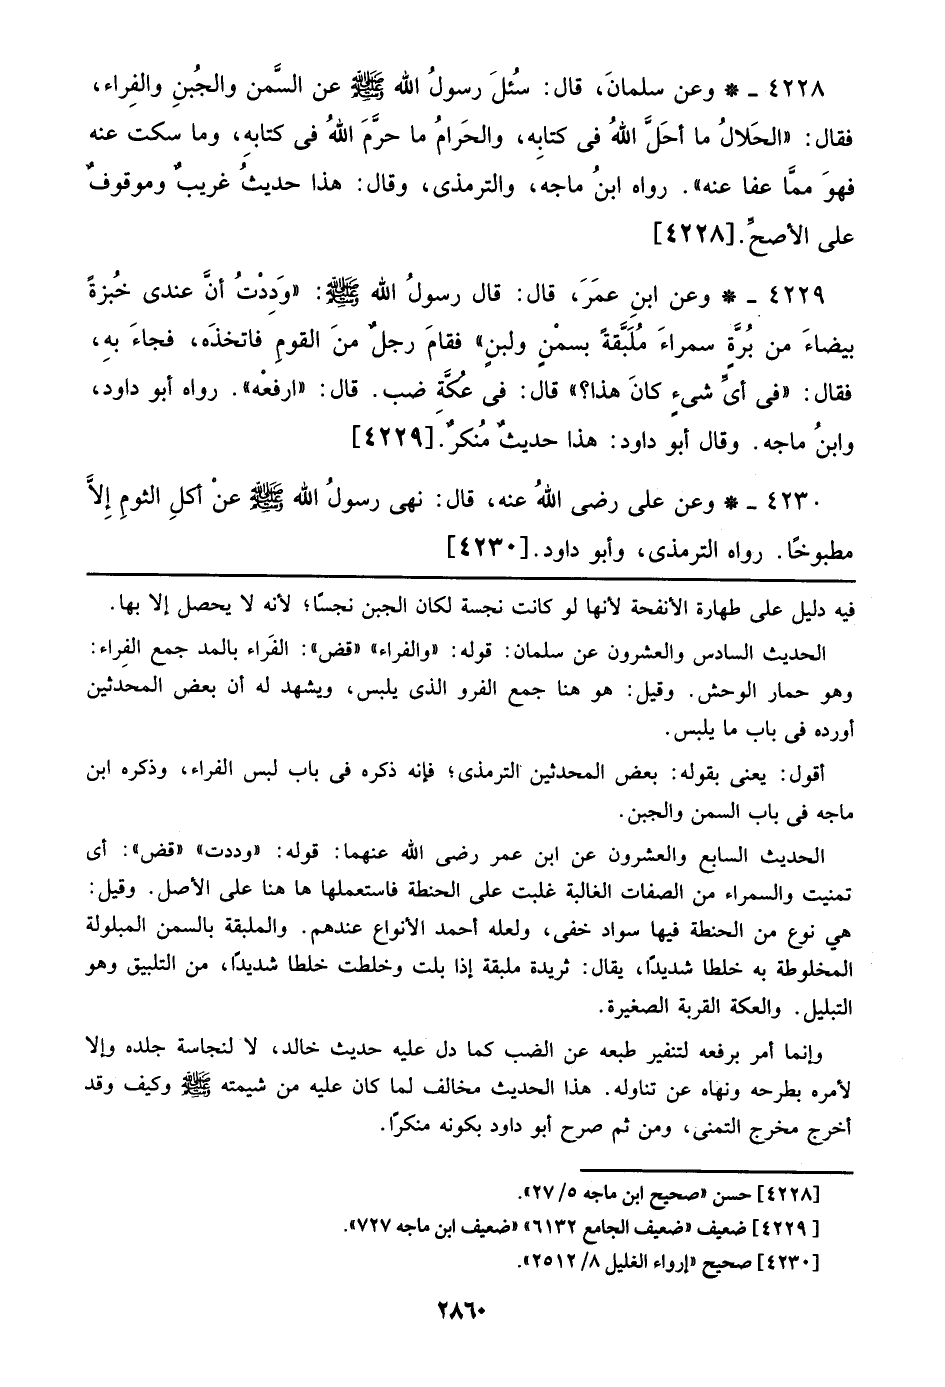 ٤٢٢٨ ـ * وعن سلمانَ، قال: سُئلَ رسولُ الله ﷺ عن السَّمن والجُبنِ والفِراء،
فقال: «الحَلالُ ما أحَلَّ اللهُ فى كتابِه، والحَرامُ ما حرَّمَ اللهُ فى كتابهِ، وما سكت عنه
فهوَ ممَّا عفا عنه». رواه ابنُ ماجه، والترمذى، وقال: هذا حديثُ غريبٌ وموقوفٌ
على الأصحِّ.[٤٢٢٨]
٤٢٢٩ ـ * وعن ابنِ عمَرَ، قال: قال رسولُ الله ﷺ: «وَدِدْتُ أنَّ عندى خُبزةً
بيضاءَ من بُرَّةٍ سمراءَ مُلَبَّقةً بسمْنٍ ولبنٍ» فقامَ رجلٌ منَ القومِ فاتخذَه، فجاءَ بهِ،
فقال: «فى أىِّ شىءٍ كانَ هذا؟» قال: فى عُكَّةِ ضب. قال: «ارفعْه». رواه أبو داود،
وابنُ ماجه. وقال أبو داود: هذا حديثٌ مُنكرٌ.[٤٢٢٩]
٤٢٣٠ ـ * وعن على رضى اللهُ عنه، قال: نهى رسولُ الله ﷺ عنْ أكلِ الثومِ إلاَّ
مطبوخًا. رواه الترمذى، وأبو داود.[٤٢٣٠]
فيه دليل على طهارة الأنفحة لأنها لو كانت نجسة لكان الجبن نجسًا؛ لأنه لا يحصل إلا بها.
الحديث السادس والعشرون عن سلمان: قوله: «والفراء» «قض»: الفَراء بالمد جمع الفِراء:
وهو حمار الوحش. وقيل: هو هنا جمع الفرو الذى يلبس، ويشهد له أن بعض المحدثين
أورده فى باب ما يلبس.
أقول: يعنى بقوله: بعض المحدثين الترمذى؛ فإنه ذكره فى باب لبس الفراء، وذكره ابن
ماجه فى باب السمن والجبن.
الحديث السابع والعشرون عن ابن عمر رضى الله عنهما: قوله: «وددت» «قض»: أى
تمنيت والسمراء من الصفات الغالبة غلبت على الحنطة فاستعملها ها هنا على الأصل. وقيل:
هي نوع من الحنطة فيها سواد خفى، ولعله أحمد الأنواع عندهم. والملبقة بالسمن المبلولة
المخلوطة به خلطا شديدًا، يقال: ثريدة ملبقة إذا بلت وخلطت خلطا شديدًا، من التلبيق وهو
التبليل. والعكة القربة الصغيرة.
وإنما أمر برفعه لتنفير طبعه عن الضب كما دل عليه حديث خالد، لا لنجاسة جلده وإلا
لأمره بطرحه ونهاه عن تناوله. هذا الحديث مخالف لما كان عليه من شيمته ﷺ وكيف وقد
أخرج مخرج التمنى، ومن ثم صرح أبو داود بكونه منكرًا.
[٤٢٢٨] حسن «صحيح ابن ماجه ٥/ ٢٧».
[٤٢٢٩] ضعيف «ضعيف الجامع ٦١٣٢» «ضعيف ابن ماجه ٧٢٧».
[٤٢٣٠] صحيح «إرواء الغليل ٨/ ٢٥١٢».
٢٨٦٠